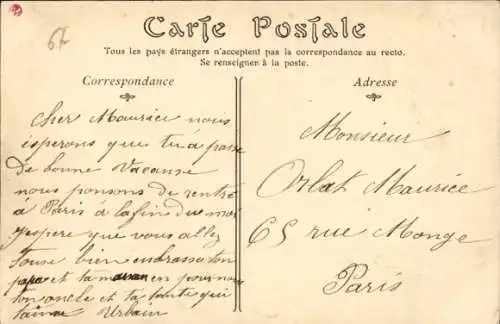 67
Carte Postale
Tous les pays étrangers n'acceptent pas la correspondance au recto.
Se renseigner à la poste.
Correspondance
Adresse
cher Maurice nous
esperons que tu a passe
de bonne Vacanse
nous ponsons de rentré
à Paris à la fin du moi
jespere que vous allez
tous bien embrasse ton
papa et ta maman en pour nous
ton oncle et ta tante qui
t'aime Urbain
Monsieur
Orlat Maurice
65 rue Monge
Paris